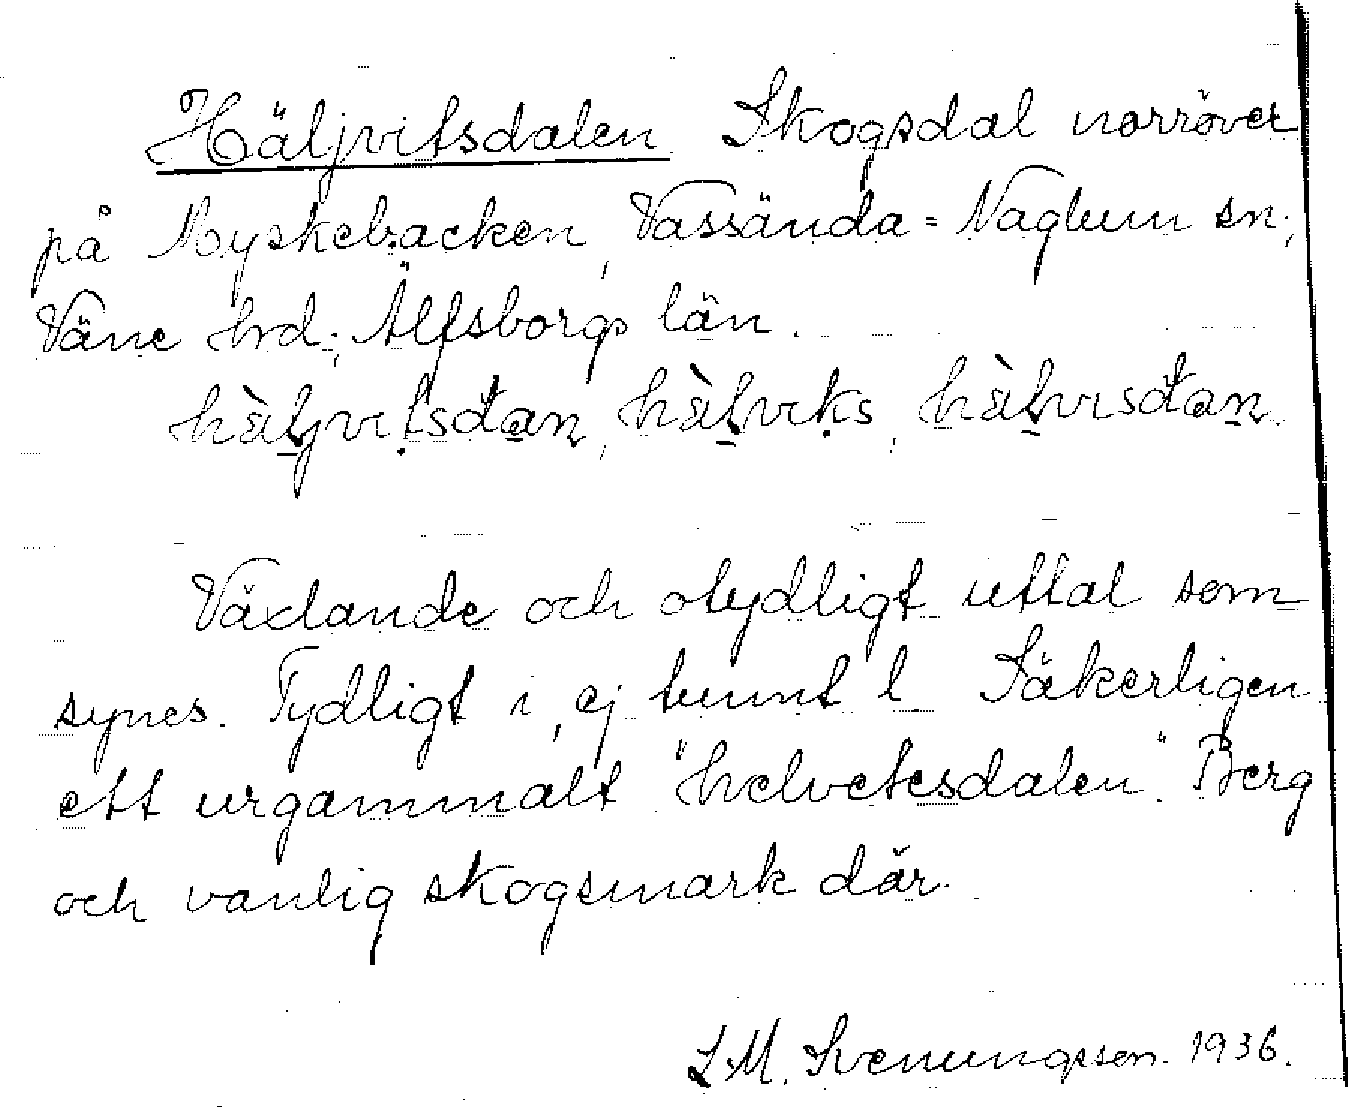 Häljvitsdalen Skogsdal norröver
på Myskebacken, Vassända-Naglum sn;
Väne hrd; Älfsborgs län.
hàljvitsdan, hàlviks, hàlvisdan.
Växlande och otydligt uttal som
synes. Tydligt i, ej tunnt l Säkerligen
ett urgammalt "helvetesdalen". Berg
och vanlig skogsmark där.
S.M. Svenungsson. 1936.